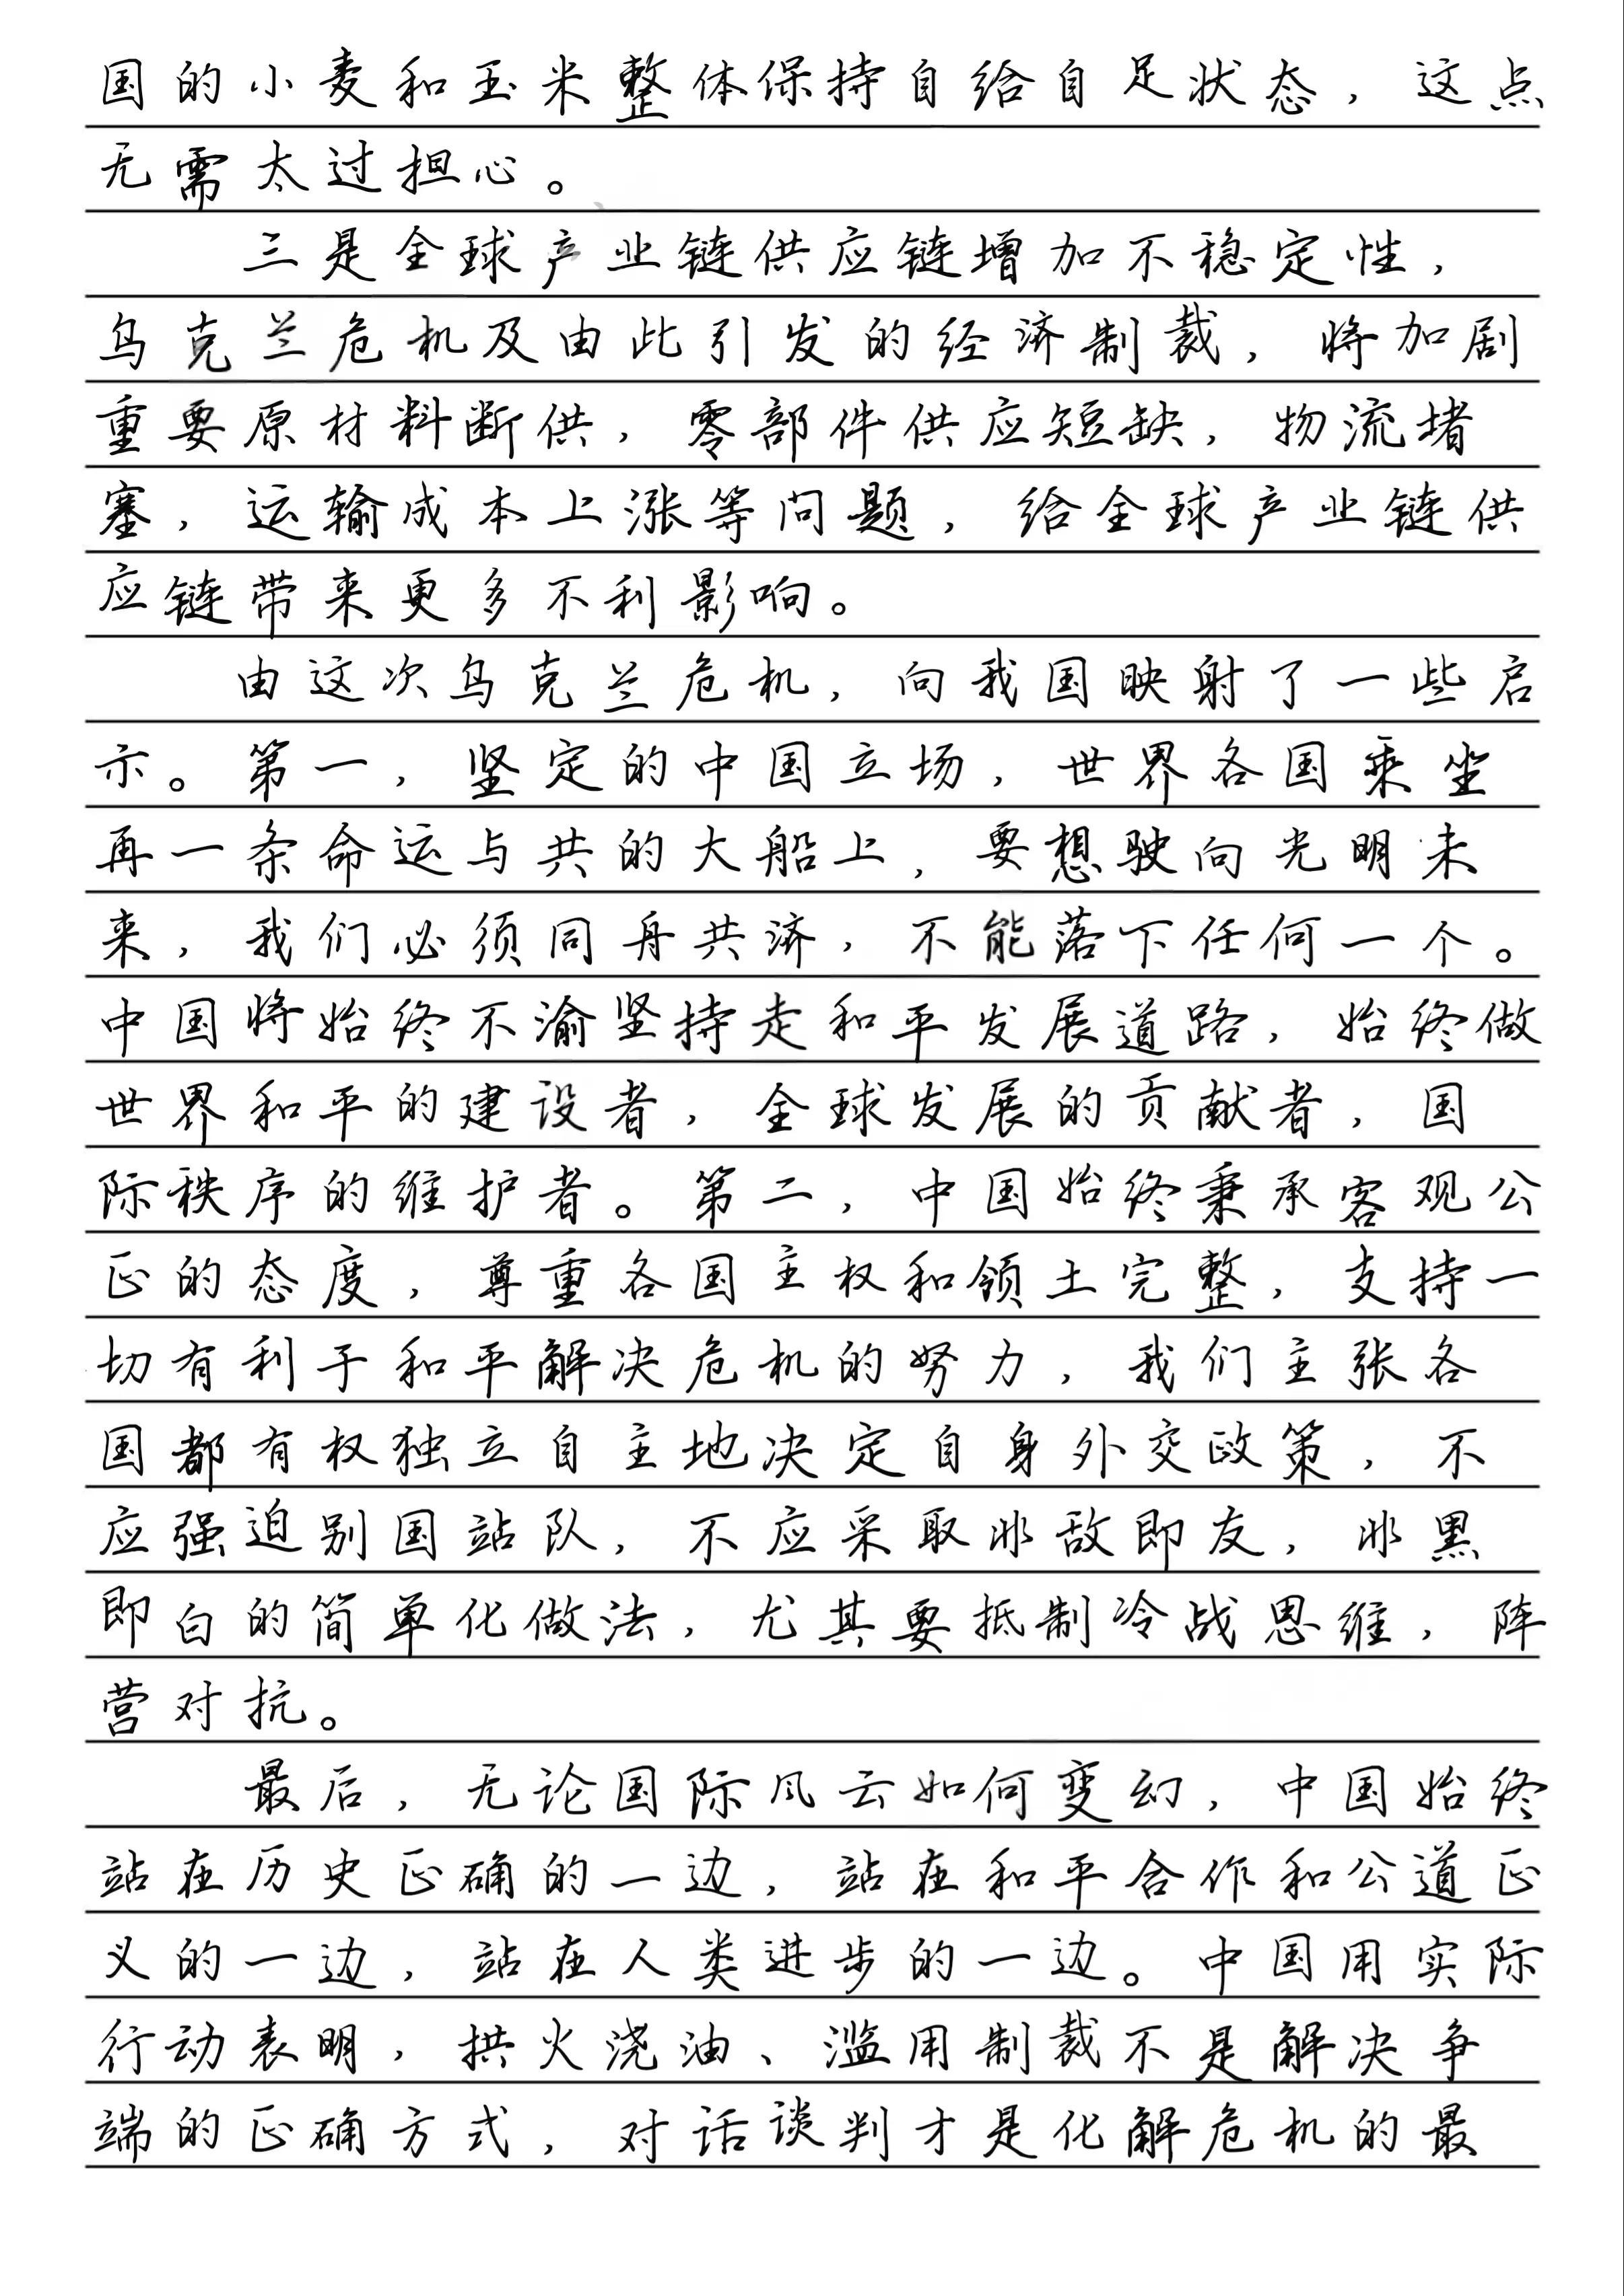 国的小麦和玉米整体保持自给自足状态，这点
无需太过担心。
三是全球产业链供应链增加不稳定性，
乌克兰危机及由此引发的经济制裁，将加剧
重要原材料断供，零部件供应短缺，物流堵
塞，运输成本上涨等问题，给全球产业链供
应链带来更多不利影响。
由这次乌克兰危机，向我国映射了一些启
示。第一，坚定的中国立场，世界各国乘坐
再一条命运与共的大船上，要想驶向光明未
来，我们必须同舟共济，不能落下任何一个。
中国将始终不渝坚持走和平发展道路，始终做
世界和平的建设者，全球发展的贡献者，国
际秩序的维护者。第二，中国始终秉承客观公
正的态度，尊重各国主权和领土完整，支持一
切有利于和平解决危机的努力，我们主张各
国都有权独立自主地决定自身外交政策，不
应强迫别国站队，不应采取非敌即友，非黑
即白的简单化做法，尤其要抵制冷战思维，阵
营对抗。
最后，无论国际风云如何变幻，中国始终
站在历史正确的一边，站在和平合作和公道正
义的一边，站在人类进步的一边。中国用实际
行动表明，拱火浇油、滥用制裁不是解决争
端的正确方式，对话谈判才是化解危机的最